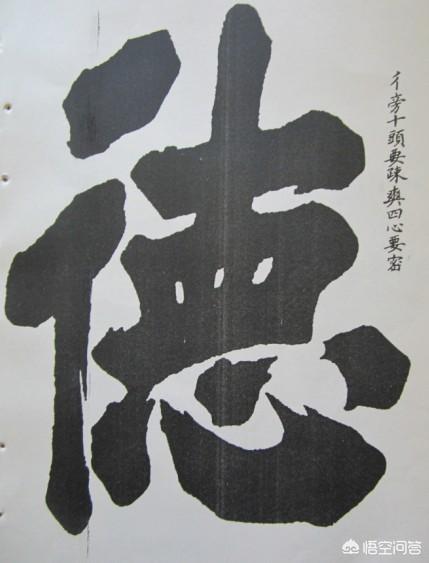 德
彳旁十頭要疎爽四心要密
悟空问答